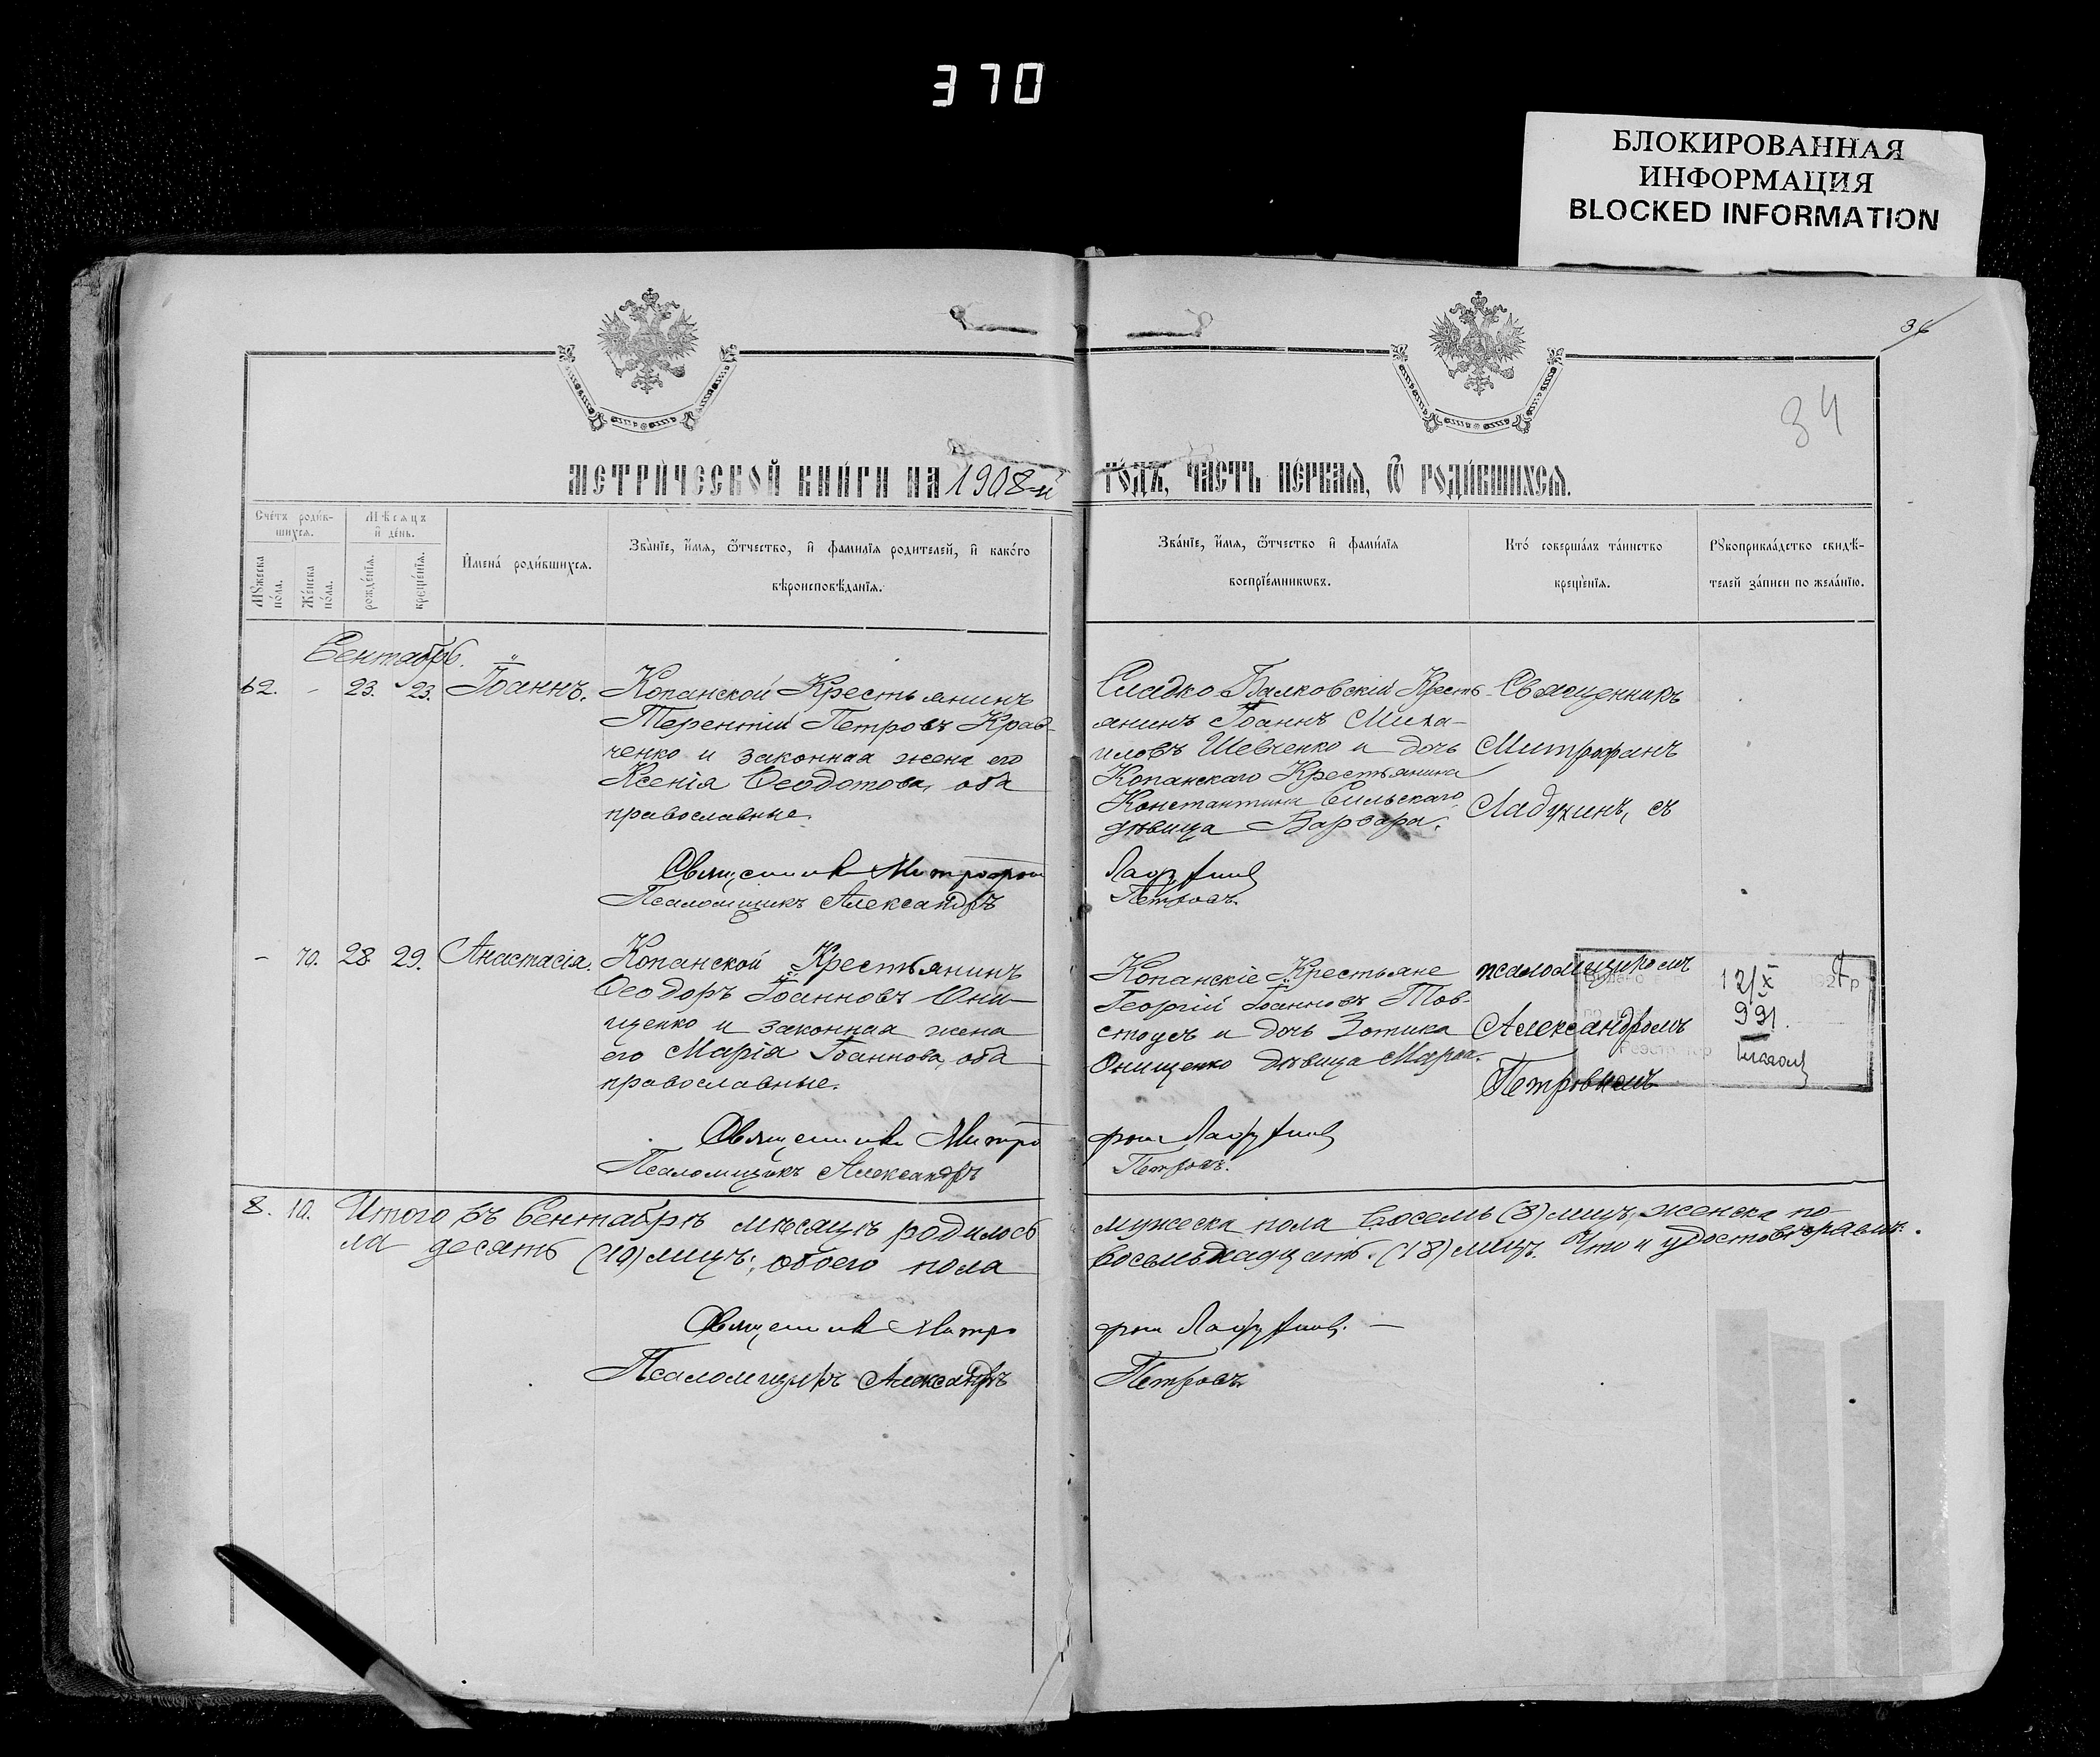 370
БЛОКИРОВАННАЯ
ИНФОРМАЦИЯ
BLOCKED INFORMATION
36
34
МЕТРИ́ЧЕСКОЙ КНИ́ГИ НА 1908-й
ГО́ДЪ, ЧАСТЬ ПЕ́РВАЯ, Ѿ РОДИ́ВШИХСЯ.
Сче́тъ роди́в-
шихся.
Мѣ́сяцъ
и де́нь.
Му́жеска
по́ла.
Же́нска
по́ла.
рожде́нїя.
креще́нїя.
Имена́ роди́вшихся.
Зва́нїе, и́мя, ѻ́тчество, и фами́лїя роди́телей, и како́го
вѣроисповѣ́данїя.
Зва́нїе, и́мя, ѻ́тчество и фами́лїя
воспрїе́мниковъ.
Кто́ соверша́лъ та́инство
креще́нїя.
Рукоприкла́дство свидѣ́-
телей за́писи по жела́нїю.
Сентябрь.
62. - 23. 23. Іоаннъ.
Копанской Крестьянинъ
Терентій Петровъ Крав-
ченко и законная жена его
Ксенія Ѳеодотова, оба
православные.
Священникъ Митрофан
Псаломщикъ Александръ
Сладко Балковскій Кресть-
янинъ Іоаннъ Миха-
иловъ Шевченко и дочь
Копанскаго Крестьянина
Константина Сильскаго
дѣвица Варвара.
Петровъ.
Священникъ
Митрофанъ
Ладухинъ, съ
- 70. 28. 29. Анастасія.
Копанской Крестьянинъ
Ѳеодоръ Іоанновъ Они-
щенко и законная жена
его Марія Іоаннова, оба
православные.
Священникъ Митро
Псаломщикъ Александръ
Копанскіе Крестьяне
Георгій Іоанновъ Тов-
стоусъ и дочь Зотика
Онищенко дѣвица Марѳа.
фан
Петровъ.
псаломщикомъ
Александромъ
Петровымъ
12/X 192 р
991.
8. 10. Итого въ Сентябрѣ мѣсяцѣ родилось
ла десять (10) лицъ; обоего пола
мужеска пола восемь (8) лицъ, женска по-
восемьнадцать (18) лицъ. Что и удостовѣряемъ.
Священникъ Митро
Псаломщикъ Александръ
фан
Петровъ